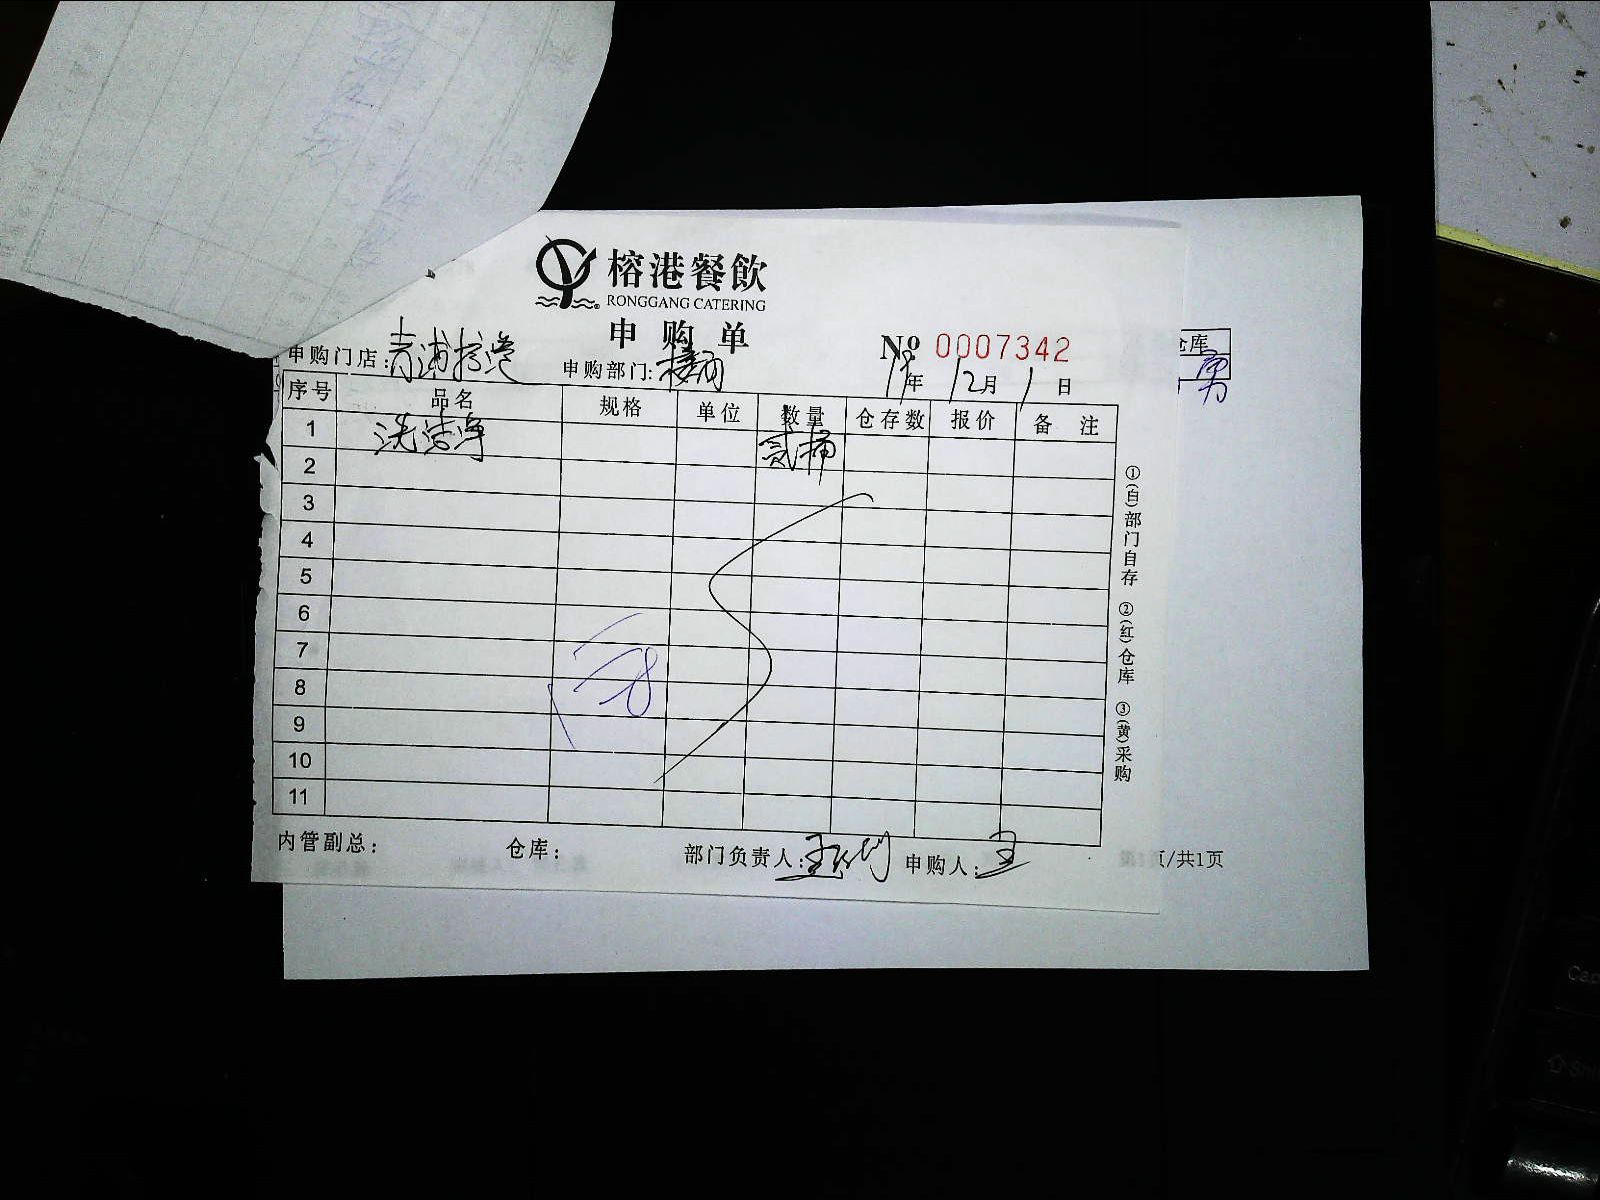 榕港餐飲
RONGGANG CATERING
申购单
申购门店: 青浦榕港 申购部门: 楼面 № 0007342
年 12月 1日
序号 品名 规格 单位 数量 仓存数 报价 备注
1 洗洁净 贰桶
2
3
4
5
6
7
8
9
10
11
内管副总: 仓库: 部门负责人: 申购人: 王
①(白)部门自存 ②(红)仓库 ③(黄)采购
仓库
页/共1页